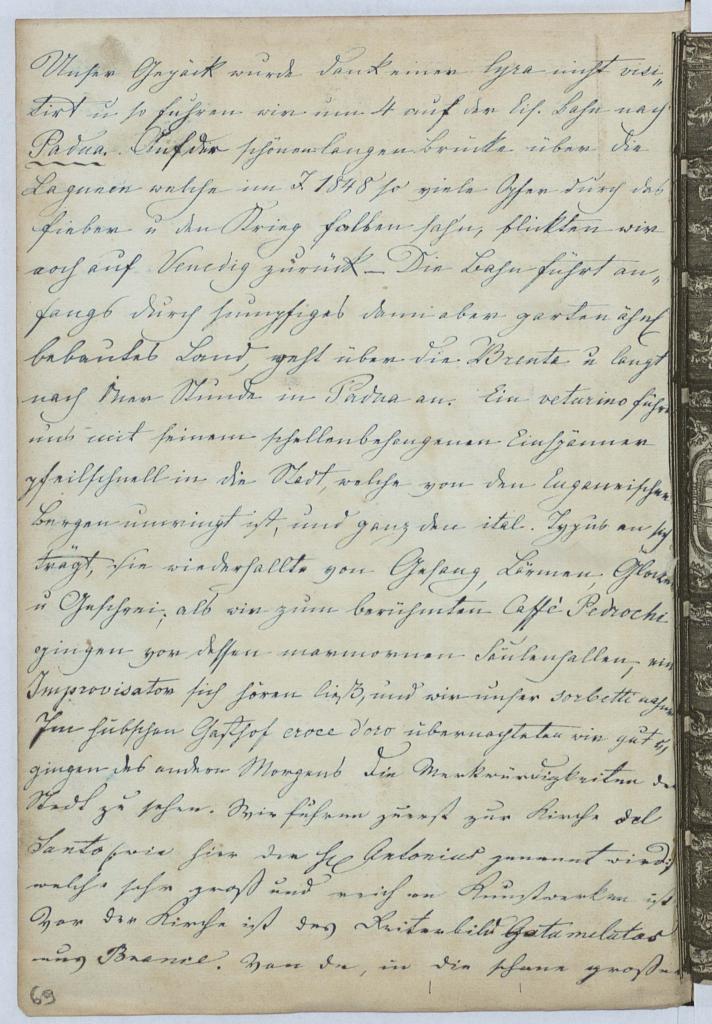 Unser Gepäck wurde dank einer Lyra nicht visi„
tirt u so fuhren wir um 4 auf der Eis. Bahn nach
Padua. Auf der schönen langen Brücke über die
Lagunen welche im J. 1848 so viele Opfer durch das
Fieber u den Krieg fallen sahn, blickten wir
noch auf Venedig zurück – Die Bahn führt an„
fangs durch sumpfiges dann aber gartenähnl
bebautes Land, geht über die Brenta u langt
nach 1ner Stunde in Padua an. Ein veturino führt
uns mit seinem schellenbehangenen Einspänner
pfeilschnell in die Stadt, welche von den Euganeischen
Bergen umringt ist, und ganz den ital. Typus an sich
trägt, sie wiederhallte von Gesang, Lärmen, Glocken
u Geschrei, als wir zum berühmten Caffè Pedrochi
gingen vor dessen marmornen Säulenhallen, ein
Improvisator sich hören ließ, und wir unser sorbetti nahmen
Im hübschen Gasthof croce d'oro übernachteten wir gut u,
gingen des andern Morgens die Merkwürdigkeiten der
Stadt zu sehen. Wir fuhren zuerst zur Kirche del
Santo, wie hier der hl Antonius genannt wird,
welche sehr groß und reich an Kunstwerken ist
Vor der Kirche ist das Reiterbild Gatamelatas
aus Bronce. Von da, in die schöne große
69